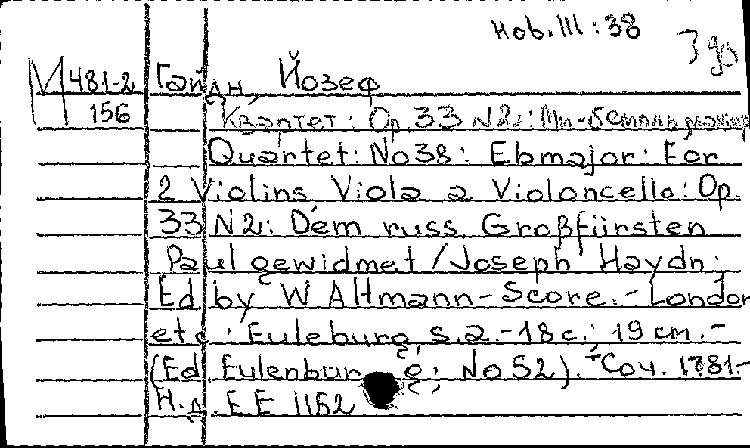 Hob. III : 38
М 481-2 Гайдн, Йозеф
156 Квартет: Op. 33 N2: Ми-бемоль мажор
Quartet: No 38: Ebmajor: For
2 Violins, Viola a Violoncello: Op.
33 N2: Dem russ. Großfürsten
Paul gewidmet / Joseph Haydn.
Ed by W Altmann - Score. - London
etc: Euleburg, s.a. - 18 c.; 19 см. -
(Ed Eulenburg; No 52). - Соч. 1781. -
Н.д. E E 1152